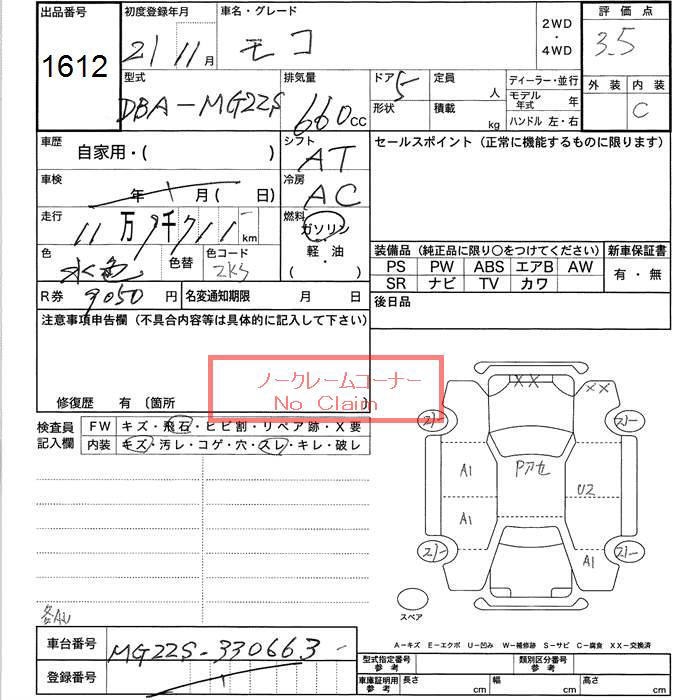 出品番号 初度登録年月 車名・グレード 2WD・4WD 評価点
1612 21 11月 モコ 3.5
型式 排気量 ドア 5 定員 人 ディーラー・並行 外装 内装
DBA-MG22S 660cc 形状 積載 kg モデル年式 年 C
ハンドル 左・右
車歴 自家用・( ) シフト AT セールスポイント (正常に機能するものに限ります)
車検 年 月( 日) 冷房 AC
走行 11万9千711 km 燃料 ガソリン・軽・油 ( )
色 水色 色替 色コード ZKS
装備品 (純正品に限り〇をつけてください) 新車保証書
PS PW ABS エアB AW 有・無
SR ナビ TV カワ
R券 9050円 名変通知期限 月 日 後日品
注意事項申告欄 (不具合内容等は具体的に記入して下さい)
ノークレームコーナー
No Claim
修復歴 有 〔箇所 〕
検査員記入欄 FW キズ・飛石・ヒビ割・リペア跡・X要
内装 キズ・汚レ・コゲ・穴・スレ・キレ・破レ
XX XX
A1 Pアセ U2
A1 A1
スペア
A-キズ E-エクボ U-凹み W-補修跡 S-サビ C-腐食 XX-交換済
車台番号 MG22S-330663
登録番号
型式指定番号 参考 類別区分番号 参考
車庫証明用 参考 長さ cm 幅 cm 高さ cm